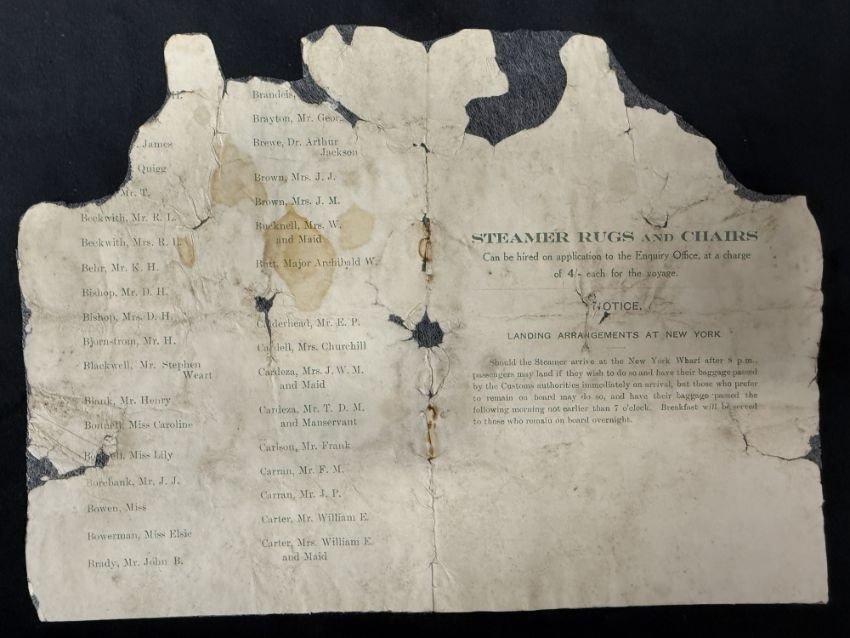 H.
James
Quigg
Mr. T.
Beckwith, Mr. R. L.
Beckwith, Mrs. R. L.
Behr, Mr. K. H.
Bishop, Mr. D. H.
Bishop, Mrs. D. H.
Bjornstrom, Mr. H.
Blackwell, Mr. Stephen
Weart
Blank, Mr. Henry
Bonnell, Miss Caroline
Miss Lily
Borebank, Mr. J. J.
Bowen, Miss
Bowerman, Miss Elsie
Brady, Mr. John B.
Brandeis,
Brayton, Mr. Geor
Brewe, Dr. Arthur
Jackson
Brown, Mrs. J. J.
Brown, Mrs. J. M.
Bucknell, Mrs. W.
and Maid
Butt, Major Archibald W.
Calderhead, Mr. E. P.
Cardell, Mrs. Churchill
Cardeza, Mrs. J. W. M.
and Maid
Cardeza, Mr. T. D. M.
and Manservant
Carlson, Mr. Frank
Carran, Mr. F. M.
Carran, Mr. J. P.
Carter, Mr. William E.
Carter, Mrs. William E.
and Maid
STEAMER RUGS AND CHAIRS
Can be hired on application to the Enquiry Office, at a charge
of 4/- each for the voyage.
NOTICE.
LANDING ARRANGEMENTS AT NEW YORK
Should the Steamer arrive at the New York Wharf after 8 p.m.,
passengers may land if they wish to do so and have their baggage passed
by the Customs authorities immediately on arrival, but those who prefer
to remain on board may do so, and have their baggage passed the
following morning not earlier than 7 o'clock. Breakfast will be served
to those who remain on board overnight.